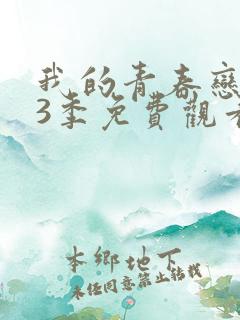 我的青春戀
3季免費觀看
本鄉地下
未任同意禁止転載